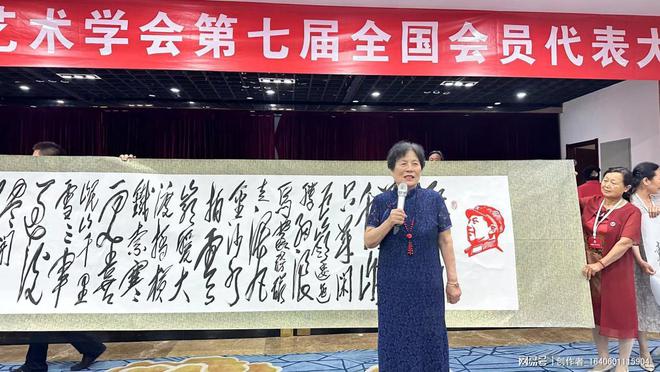 艺术学会第七届全国会员代表大
只等闲
五岭逶迤
腾细浪
乌蒙磅礴
走泥丸
金沙水
拍云
崖暖大
渡桥横
铁索寒
更喜
岷山千里
雪三军
过后
网易号 | 创作者_1640601115904